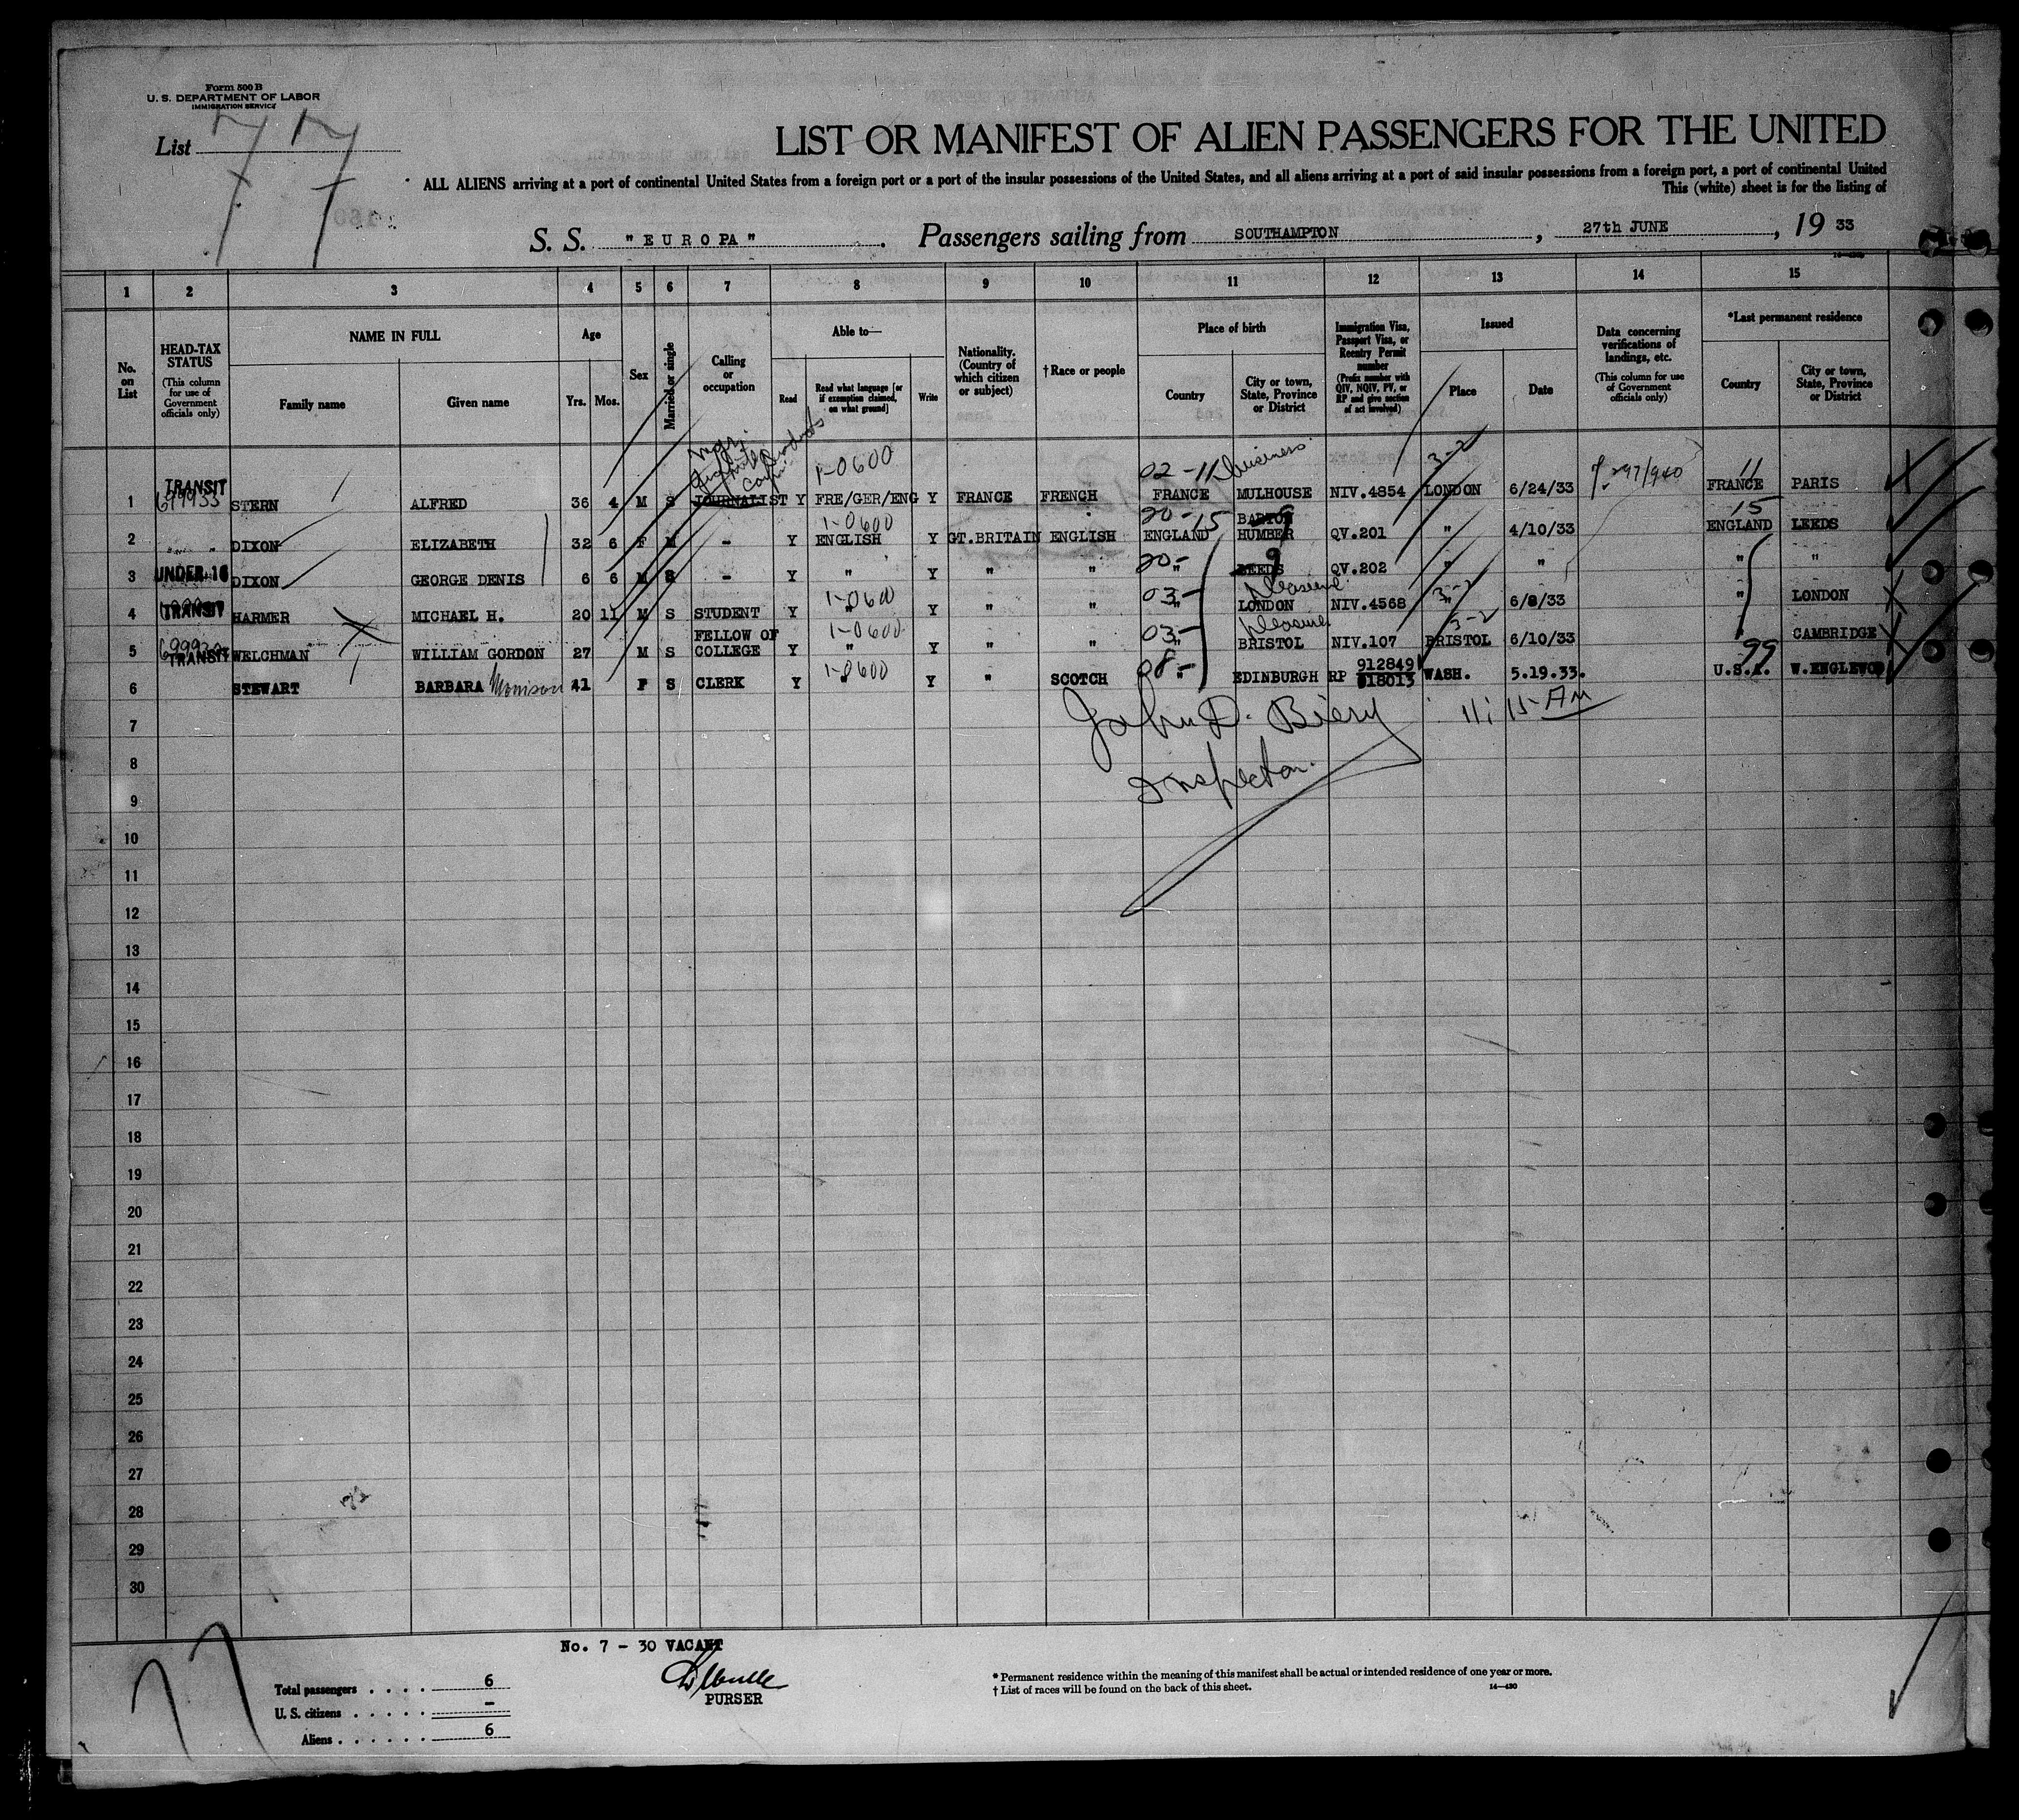 Form 500 B
U. S. DEPARTMENT OF LABOR
IMMIGRATION SERVICE
List 77
LIST OR MANIFEST OF ALIEN PASSENGERS FOR THE UNITED
ALL ALIENS arriving at a port of continental United States from a foreign port or a port of the insular possessions of the United States, and all aliens arriving at a port of said insular possessions from a foreign port, a port of continental United
This (white) sheet is for the listing of
S. S. "EUROPA". Passengers sailing from SOUTHAMPTON, 27th JUNE, 19 33
1 2 3 4 5 6 7 8 9 10 11 12 13 14 15
No. on List
HEAD-TAX STATUS (This column for use of Government officials only)
NAME IN FULL
Family name
Given name
Age
Yrs. Mos.
Sex
Married or single
Calling or occupation
Able to—
Read
Read what language [or if exemption claimed, on what ground]
Write
Nationality. (Country of which citizen or subject)
† Race or people
Place of birth
Country
City or town, State, Province or District
Immigration Visa, Passport Visa, or Reentry Permit number (Prefix number with QIV, NQIV, PV, or RP and give section of act involved)
Issued
Place
Date
Data concerning verifications of landings, etc. (This column for use of Government officials only)
*Last permanent residence
Country
City or town, State, Province or District
mgr. products
1-0600 02-11 business 3-2 11
1 TRANSIT 699933 STERN ALFRED 36 4 M S JOURNALIST Y FRE/GER/ENG Y FRANCE FRENCH FRANCE MULHOUSE NIV.4854 LONDON 6/24/33 FRANCE PARIS
1-0600 20-15 15
2 " " DIXON ELIZABETH 32 6 F M - Y ENGLISH Y GT.BRITAIN ENGLISH ENGLAND BARTON HUMBER QV.201 " 4/10/33 ENGLAND LEEDS
20- 9
3 UNDER 16 DIXON GEORGE DENIS 6 6 M S - Y " Y " " " LEEDS QV.202 " " " "
1-0600 03- pleasure 3-2
4 TRANSIT HARMER MICHAEL H. 20 11 M S STUDENT Y " Y " " " LONDON NIV.4568 " 6/8/33 " LONDON
1-0600 03- pleasure 3-2
5 TRANSIT WELCHMAN WILLIAM GORDON 27 M S FELLOW OF COLLEGE Y " Y " " " BRISTOL NIV.107 BRISTOL 6/10/33 " CAMBRIDGE
1-0600 08- 99
6 STEWART BARBARA Morrison 41 F S CLERK Y " Y " SCOTCH " EDINBURGH RP 912849 918013 WASH. 5.19.33. U.S.A. W.ENGLEWOD
7
John D. Biery 11:15 AM
8
Inspector.
9
10
11
12
13
14
15
16
17
18
19
20
21
22
23
24
25
26
27
28
29
30
No. 7 - 30 VACANT
PURSER
77
Total passengers . . . . 6
U. S. citizens . . . . . -
Aliens . . . . . . 6
* Permanent residence within the meaning of this manifest shall be actual or intended residence of one year or more.
† List of races will be found on the back of this sheet.
14—430